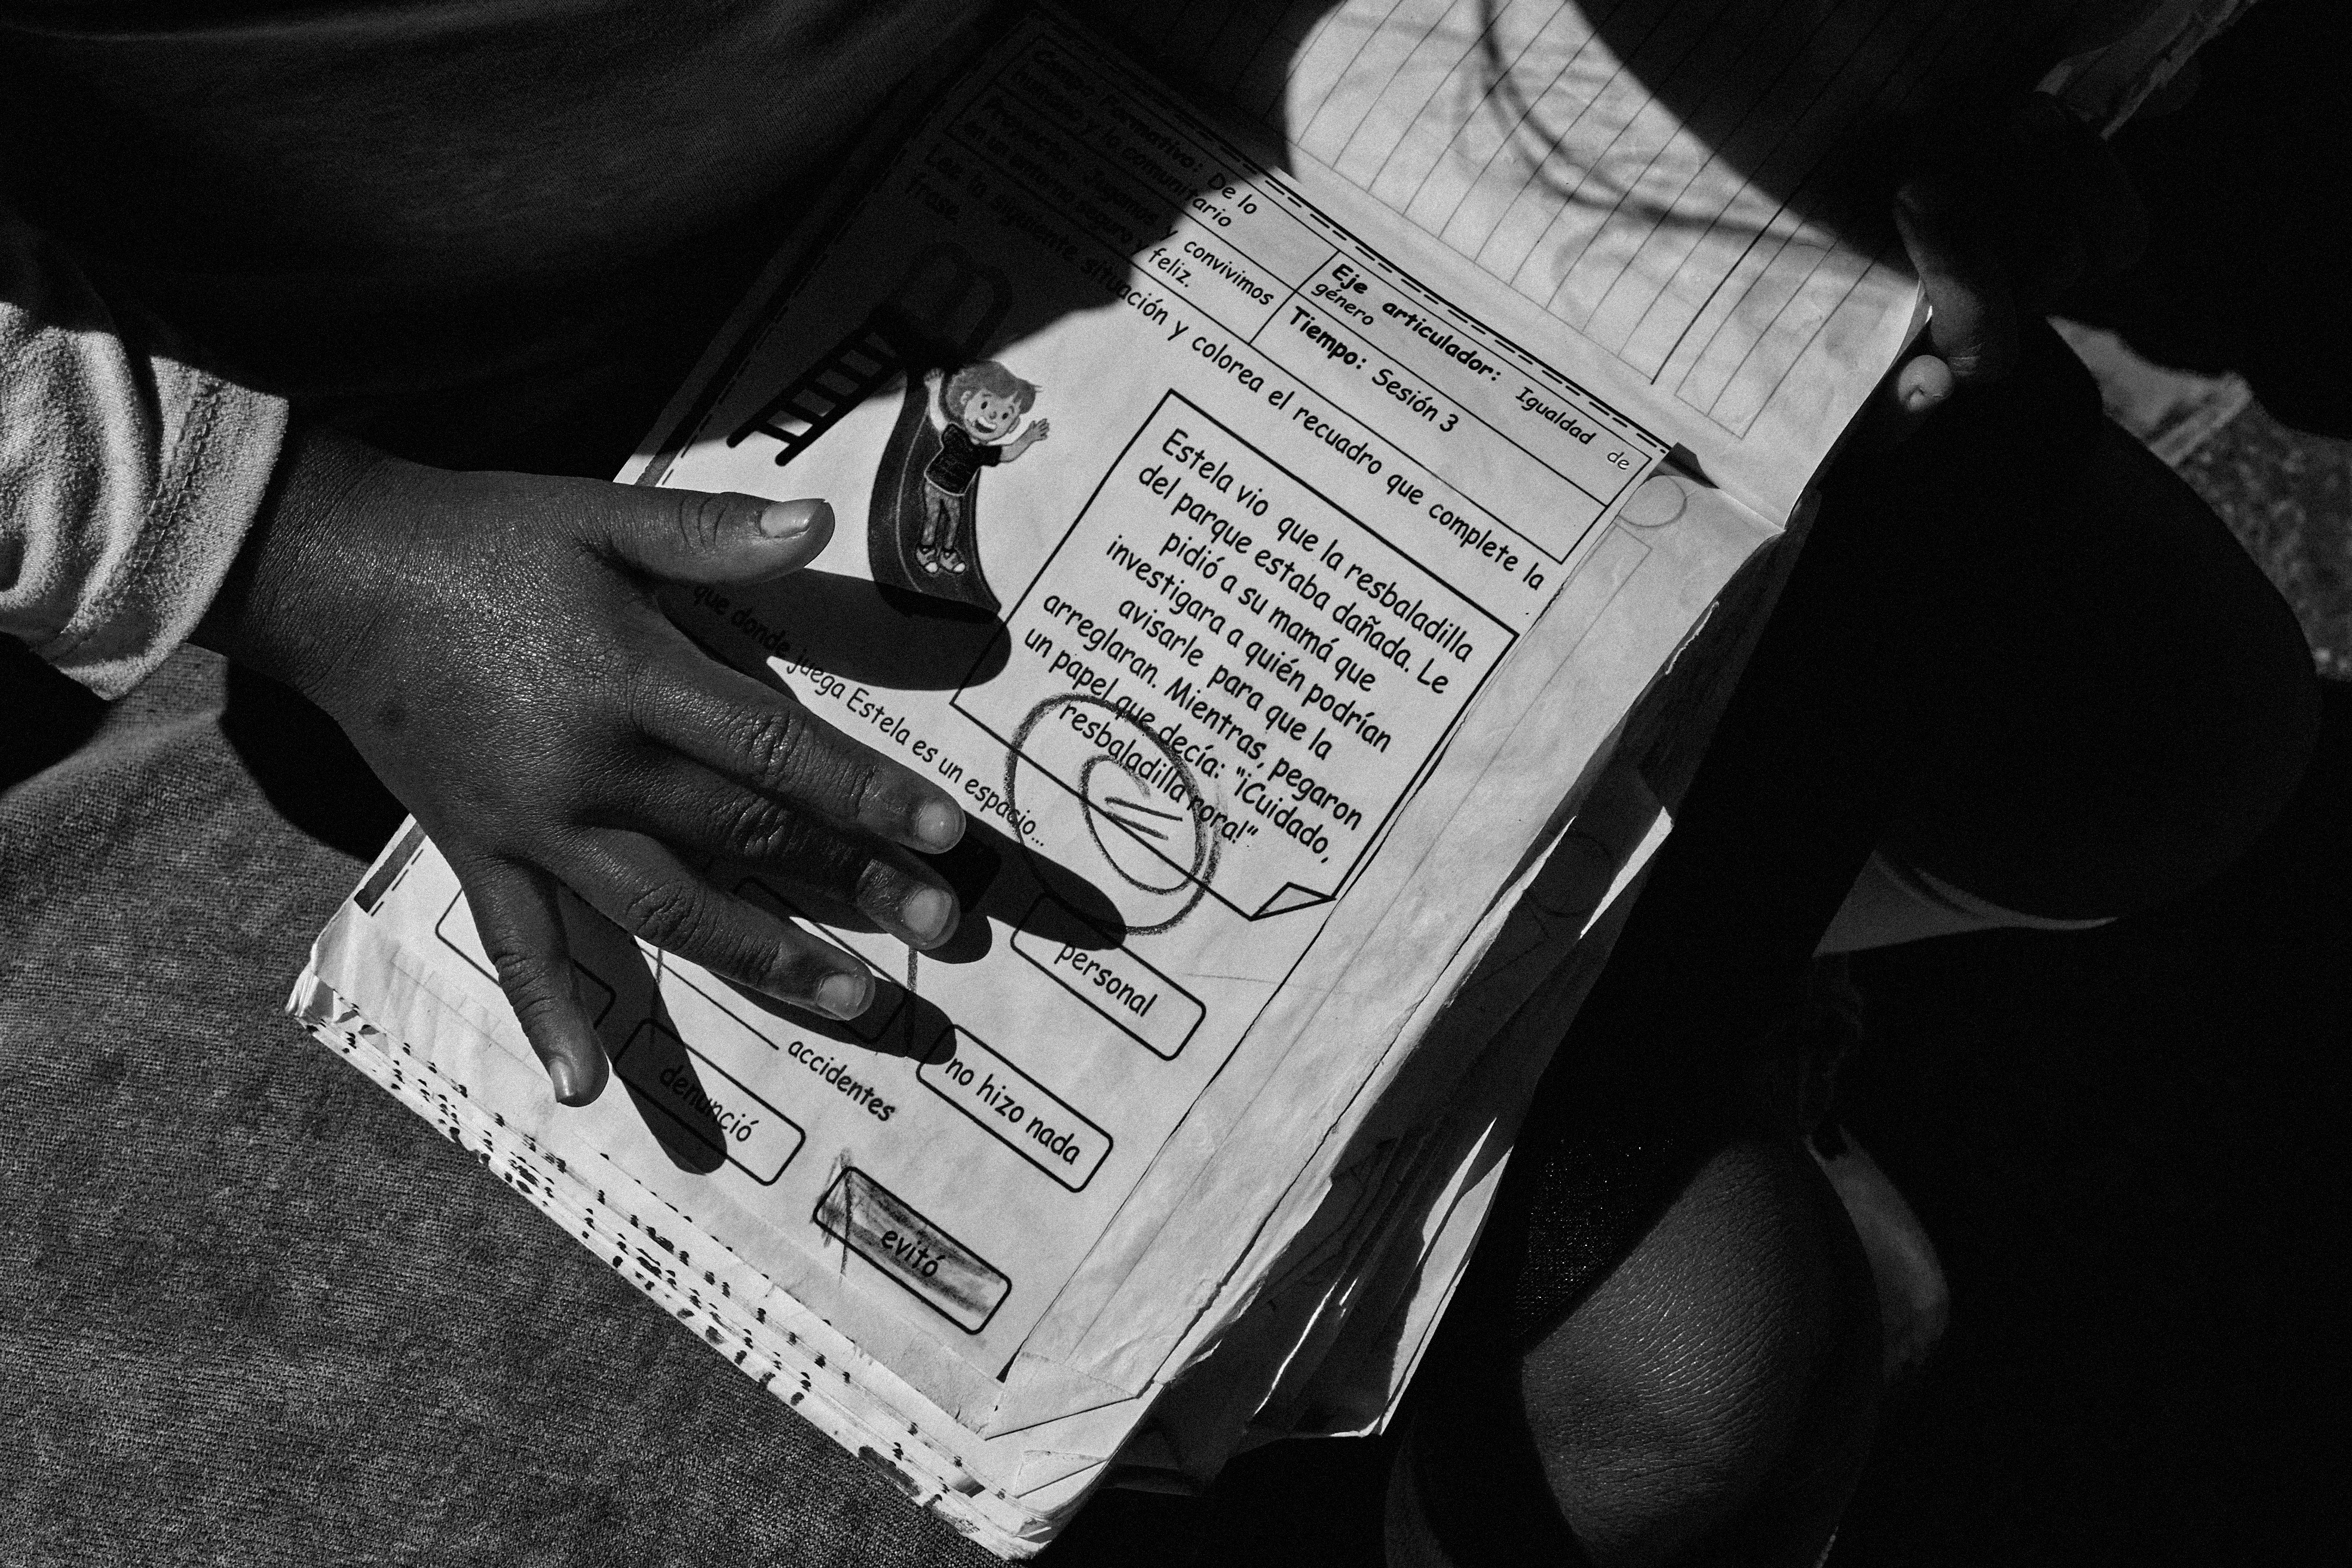 Campo Formativo: De lo
humano y lo comunitario
Eje articulador: Igualdad de
género
Proyecto: Jugamos y convivimos
en un entorno seguro y feliz.
Tiempo: Sesión 3
Lee la siguiente situación y colorea el recuadro que complete la
frase.
Estela vio que la resbaladilla
del parque estaba dañada. Le
pidió a su mamá que
investigara a quién podrían
avisarle para que la
arreglaran. Mientras, pegaron
un papel que decía: "¡Cuidado,
resbaladilla rora!"
que donde juega Estela es un espacio...
personal
accidentes
denunció
no hizo nada
evitó